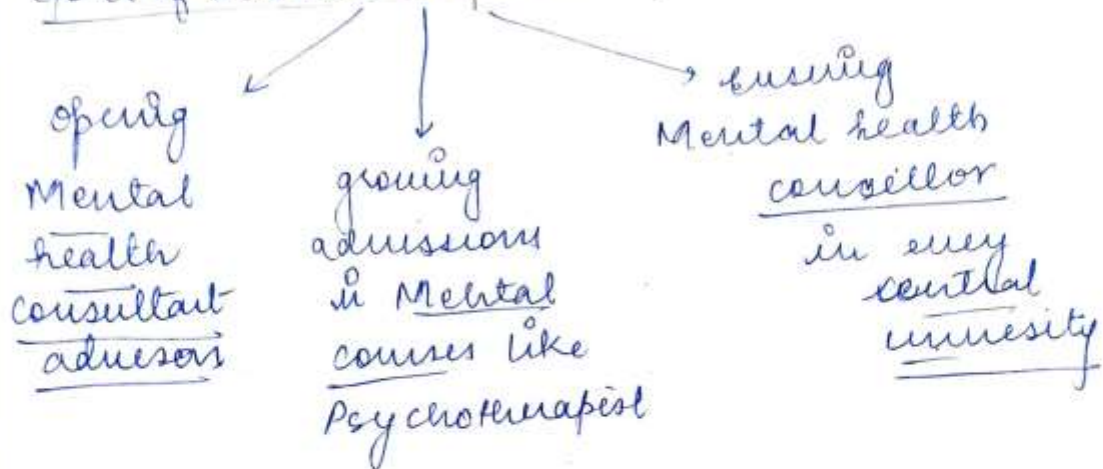 opening
Mental
health
consultant
advisors
growing
admissions
in Mental
courses like
Psychotherapist
ensuring
Mental health
councillor
in every
central
university